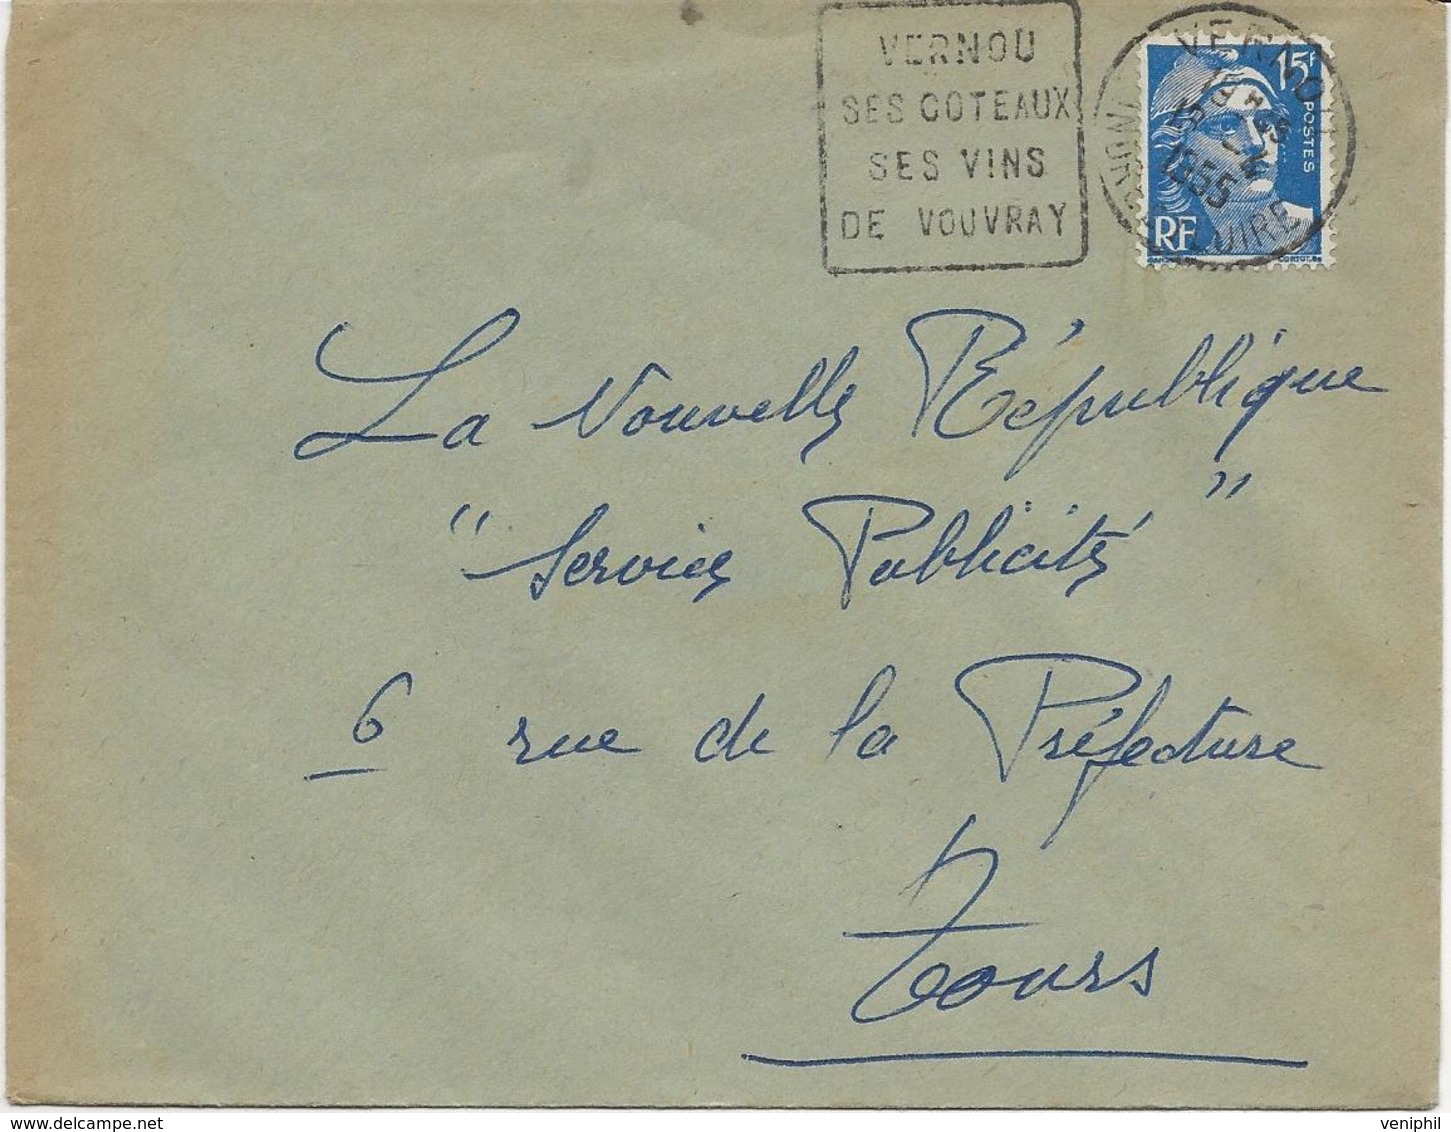 VERNOU
SES COTEAUX
SES VINS
DE VOUVRAY
VERNOU
1955
15F
POSTES
RF
La Nouvelle République
"Service Publicité"
6 rue de la Préfecture
Tours
delcampe.net
veniphil